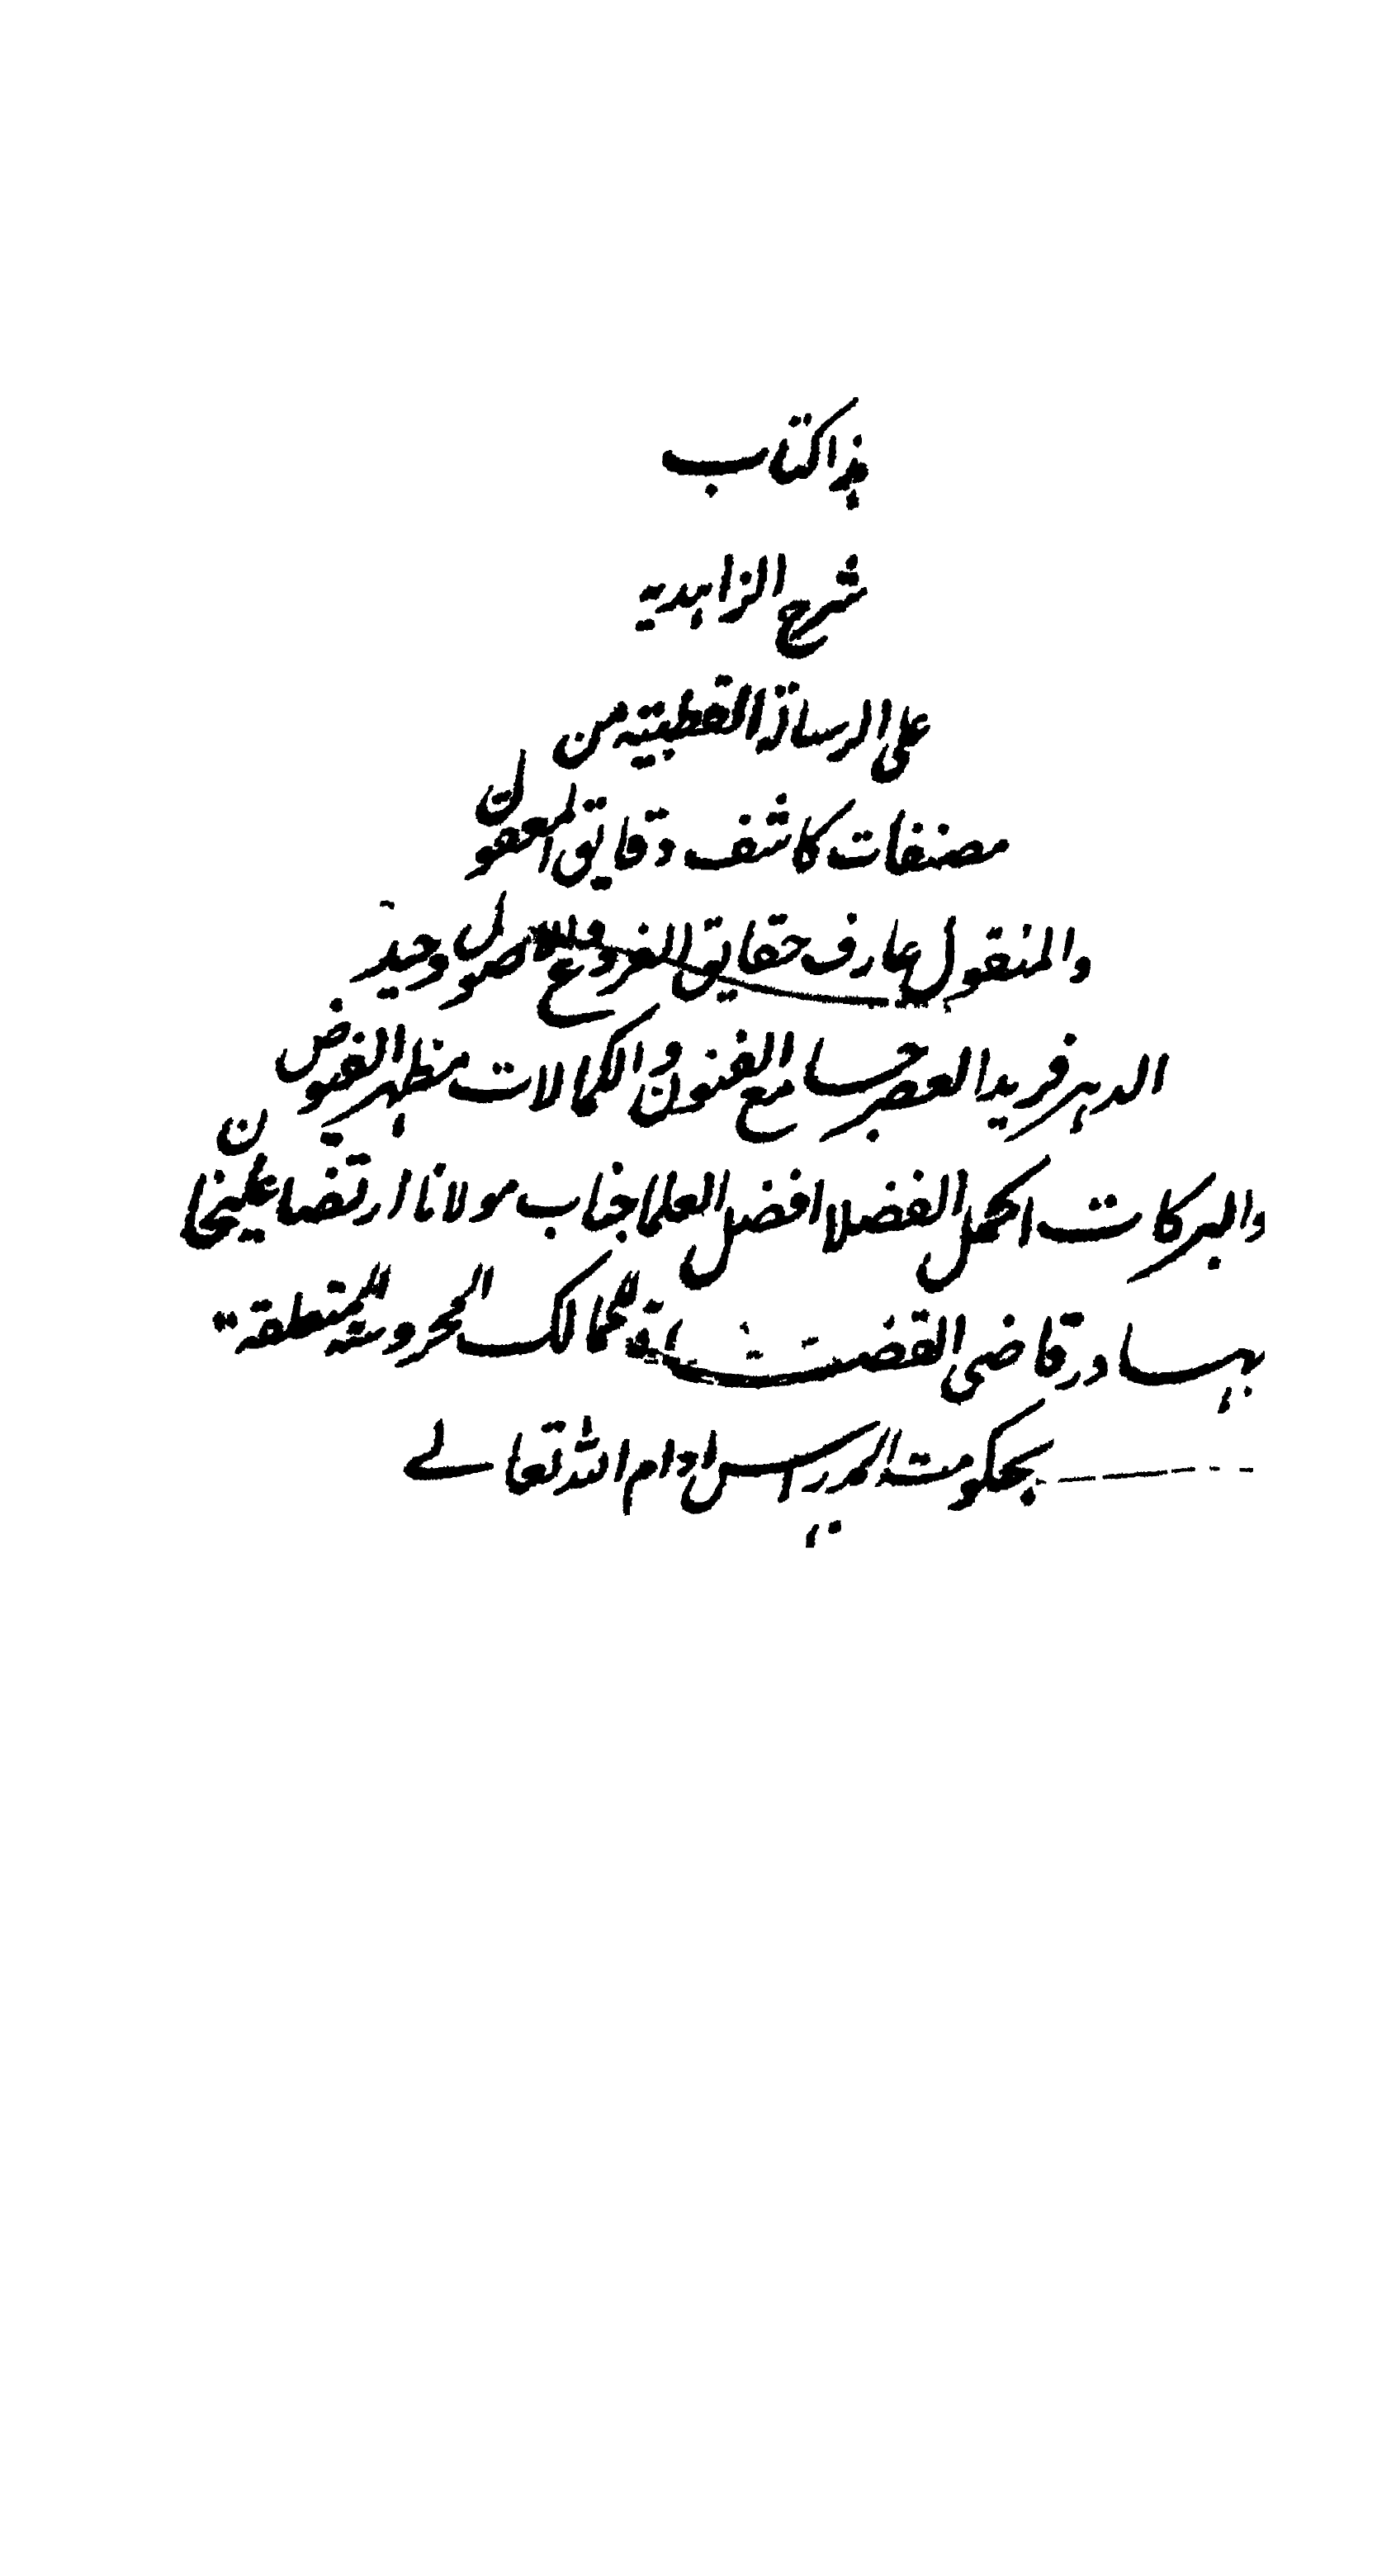 هذا كتاب
شرح الزاهديه
على الرسالة القطبية من
مصنفات كاشف دقايق المعقول
والمنقول عارف حقايق الفروع والاصول وحيد
الدهر فريد العصر جامع الفنون والكمالات مظهر الفيوض
والبركات اكمل الفضلا افضل العلما جناب مولانا ارتضا عليخان
بهادر قاضى القضاة للممالك المحروسة المتعلقة
بحكومت المدراس ادام الله تعالے